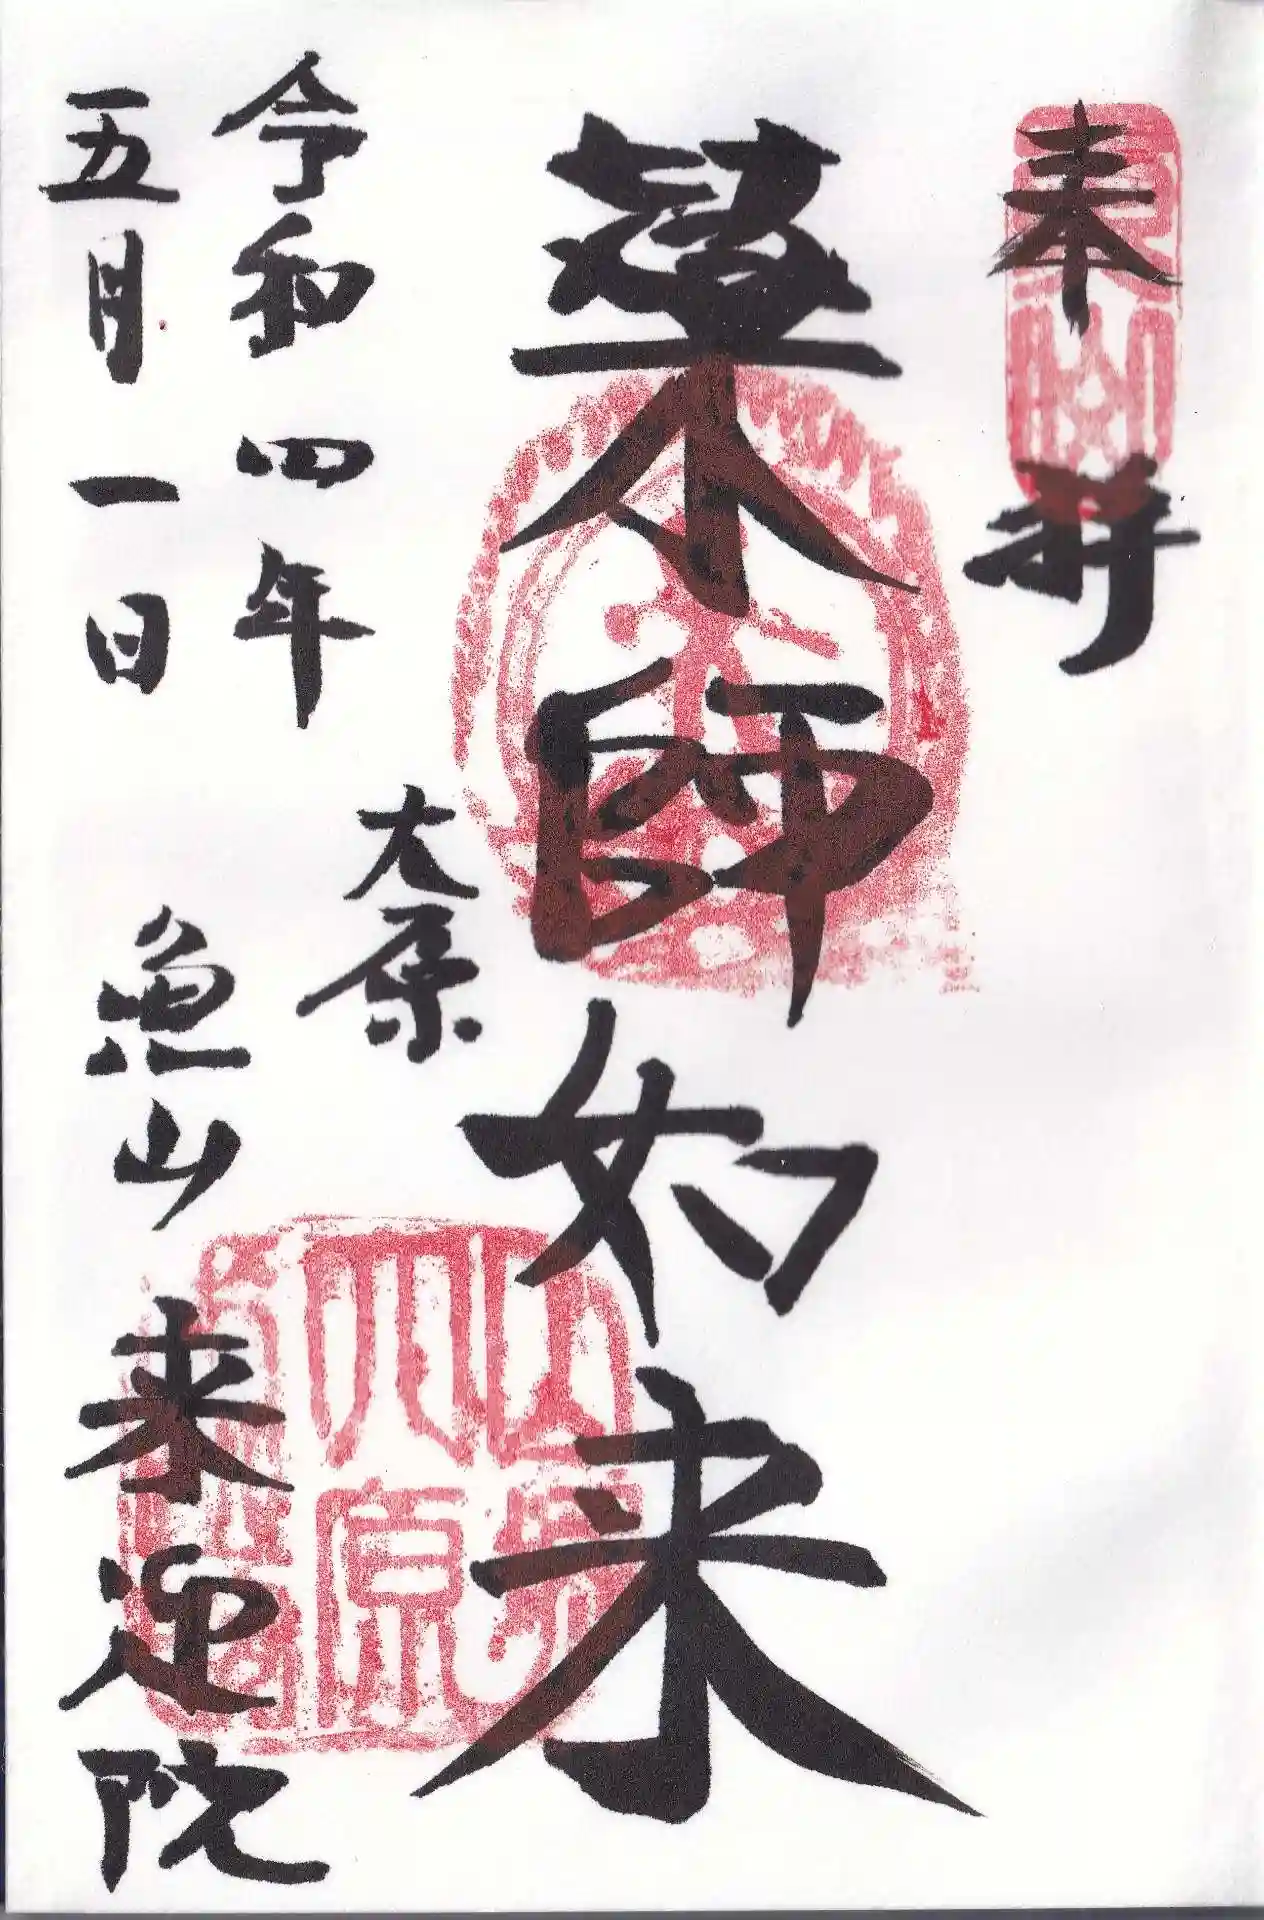 奉拝
薬師如来
大原
令和四年
魚山
来迎院
五月一日